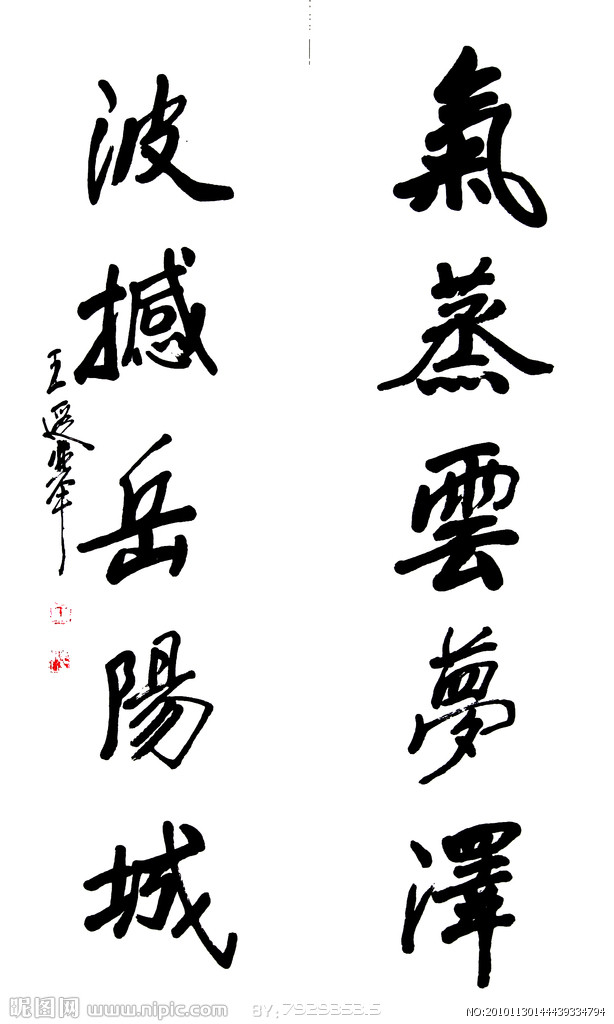 氣蒸雲夢澤
波撼岳陽城
昵图网 www.nipic.com
BY:7929353.5
NO:20101130144439334794